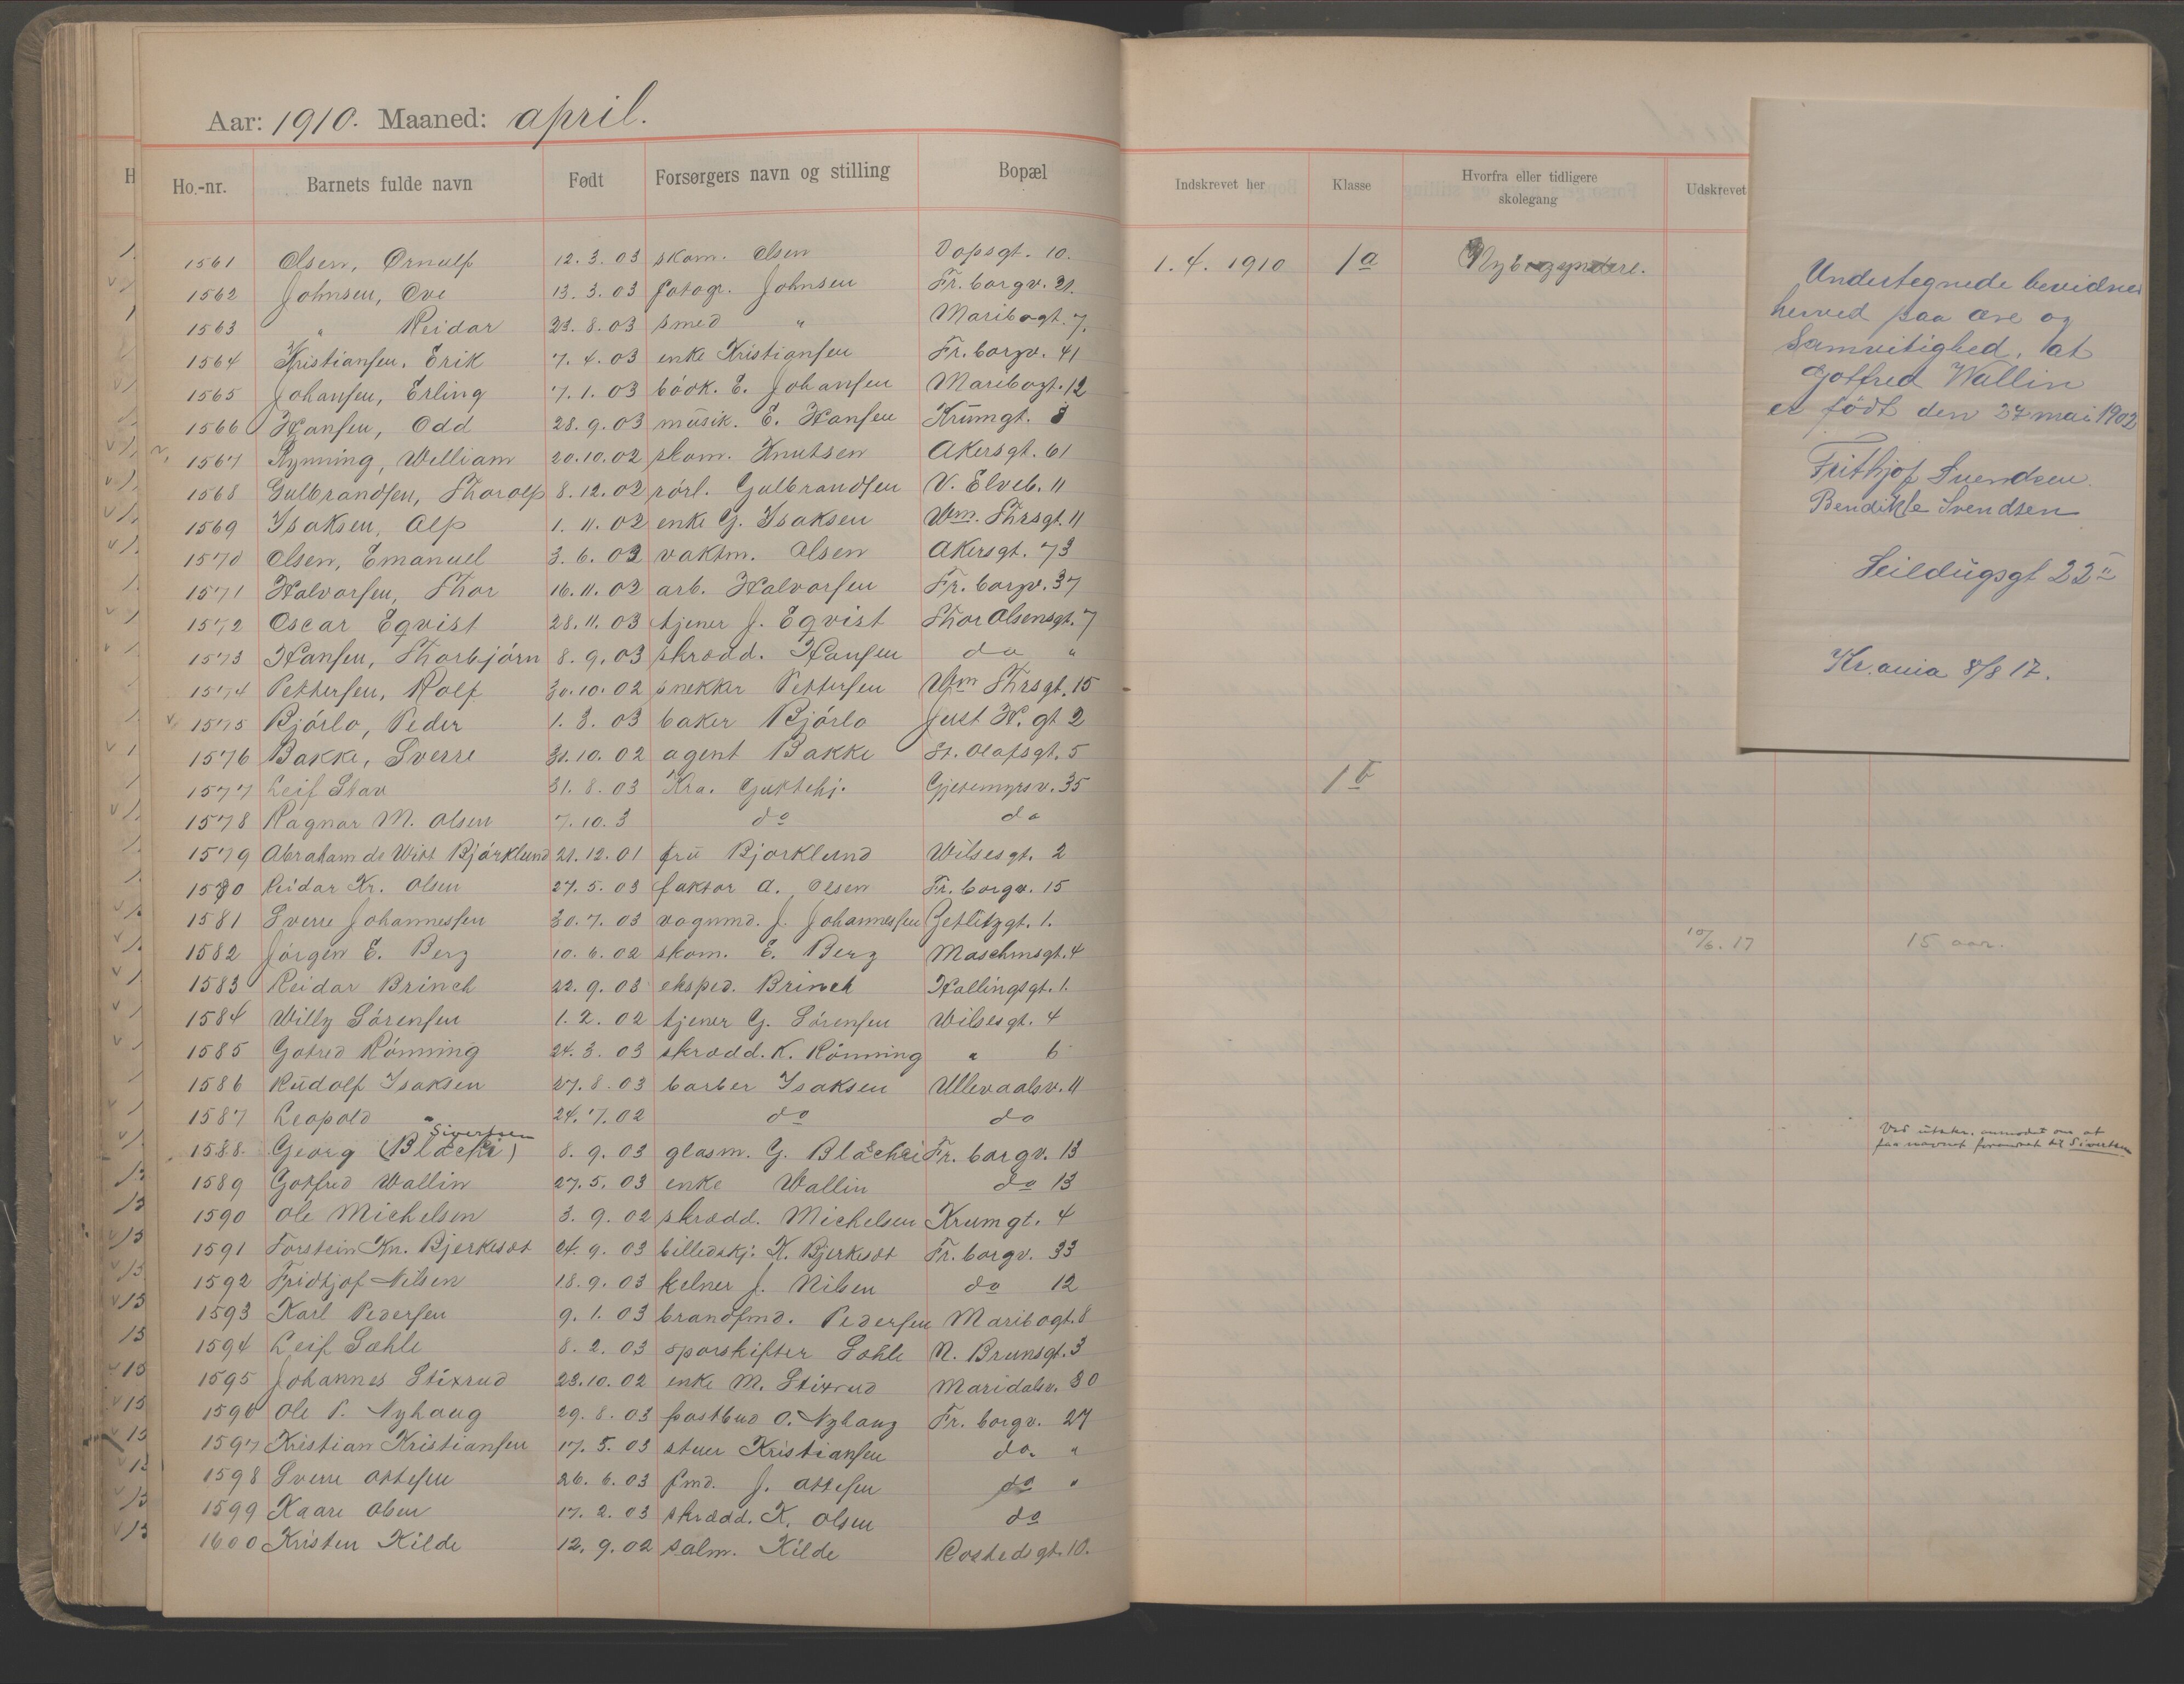 Aar: 1910. Maaned: april.
Ho.-nr. Barnets fulde navn Født Forsørgers navn og stilling Bopæl
1561 Olsen, Ørnulf 12.3.03 skom. Olsen Dopsgt. 10.
1562 Johnsen, Ove 13.3.03 fotogr. Johnsen Fr. borgv. 21.
1563 " Reidar 23.8.03 smed " Maribogt. 7.
1564 Kristiansen, Erik 7.4.03 enke Kristiansen Fr. borgv. 41
1565 Johansen, Erling 7.1.03 bödk. E. Johansen Maribogt. 12
1566 Hansen, Odd 28.9.03 musik. E. Hansen Krumgt. 8
1567 Rynning, William 20.10.02 skom. Knutsen Akersgt. 61
1568 Gulbrandsen, Thorolf 8.12.02 rörl. Gulbrandsen V. Elveb. 11
1569 Isaksen, Alf 1.11.02 enke G. Isaksen Wm. Thrsgt. 11
1570 Olsen, Emanuel 3.6.03 vaktm. Olsen Akersgt. 73
1571 Halvorsen, Thor 16.11.02 arb. Halvorsen Fr. borgv. 37
1572 Oscar Eqvist 28.11.03 tjener J. Eqvist Thor Olsensgt. 7
1573 Hansen, Thorbjörn 8.9.03 skrædd. Hansen do "
1574 Pettersen, Rolf 30.10.02 snekker Pettersen Wm Thrsgt. 15
1575 Bjórlo, Peder 1.3.03 baker Bjórlo Just H. gt 2
1576 Bakke, Sverre 31.10.02 agent Bakke St. Olafsgt. 5
1577 Leif Stav 31.8.03 Kra. Guttehj. Gjetemyrsv. 35
1578 Ragnar M. Olsen 7.10.3 do do
1579 Abraham de Witt Bjórklund 21.12.01 fru Bjorklund Wilsesgt. 2
1580 Reidar Kr. Olsen 27.5.03 faktor A. Olsen Fr. borgv. 15
1581 Sverre Johannessen 30.7.03 vognmd. J. Johannessen Zetlitzgt. 1.
1582 Jörgen E. Berg 10.6.02 skom. E. Berg Maschmsgt. 4
1583 Reidar Brinch 22.9.03 eksped. Brinch Hallingsgt. 1.
1584 Willy Sörensen 1.2.02 tjener G. Sörensen Wilsesgt. 4
1585 Gotred Rönning 24.3.03 skrædd. K. Rönning " 6
1586 Rudolf Isaksen 27.8.03 barber Isaksen Ullevaalsv. 11
1587 Leopold " 24.7.02 do do
Sivertsen
1588. Georg (Blacki) 8.9.03 glasm. G. Blachei Fr. borgv. 13
1589 Gotfred Wallin 27.5.03 enke Wallin do 13
1590 Ole Michelsen 3.9.02 skrædd. Michelsen Krumgt. 4
1591 Torstein Kn. Bjerkesot 24.9.03 billedskj. K. Bjerkesot Fr. borgv. 33
1592 Fridtjof Nilsen 18.9.03 kelner J. Nilsen do 12
1593 Karl Pedersen 9.1.03 brandfmd. Pedersen Maribogt. 8
1594 Leif Sahle 8.2.03 sporskifter Sahle N. Brunsgt. 3
1595 Johannes Stixrud 23.10.02 enke M. Stixrud Maridalsv. 30
1596 Ole P. Nyhaug 29.8.03 postbud O. Nyhaug Fr. borgv. 27
1597 Kristian Kristiansen 17.5.03 stuer Kristiansen do. "
1598 Sverre Ottesen 26.6.03 fmd. J. Ottesen do "
1599 Kaare Olsen 17.2.03 skrædd. K. Olsen do
1600 Kristen Kilde 12.9.02 salm. Kilde Rostedsgt. 10.
Indskrevet her Klasse Hvorfra eller tidligere skolegang Udskrevet
1.4.1910 1a Nybegyndere.
1b
10/6.17 15 aar.
Ved utskr. anmodet om at
faa navnet forandret til Sivertsen
Undertegnede bevidner
herved paa ære og
Samvitighed, at
Gotfred Wallin
er födt den 27 mai 1902
Frithjof Svendsen.
Bendikte Svendsen
Seildugsgt 22 II
Kr.ania 8/8 17.